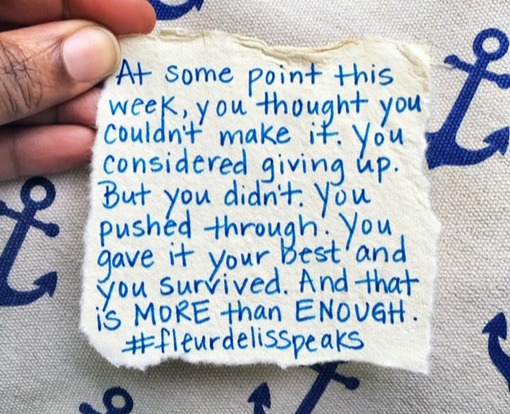 At some point this
week, you thought you
couldn't make it. You
considered giving up.
But you didn't. You
pushed through. You
gave it your best and
you survived. And that
is MORE than ENOUGH.
#fleurdelisspeaks